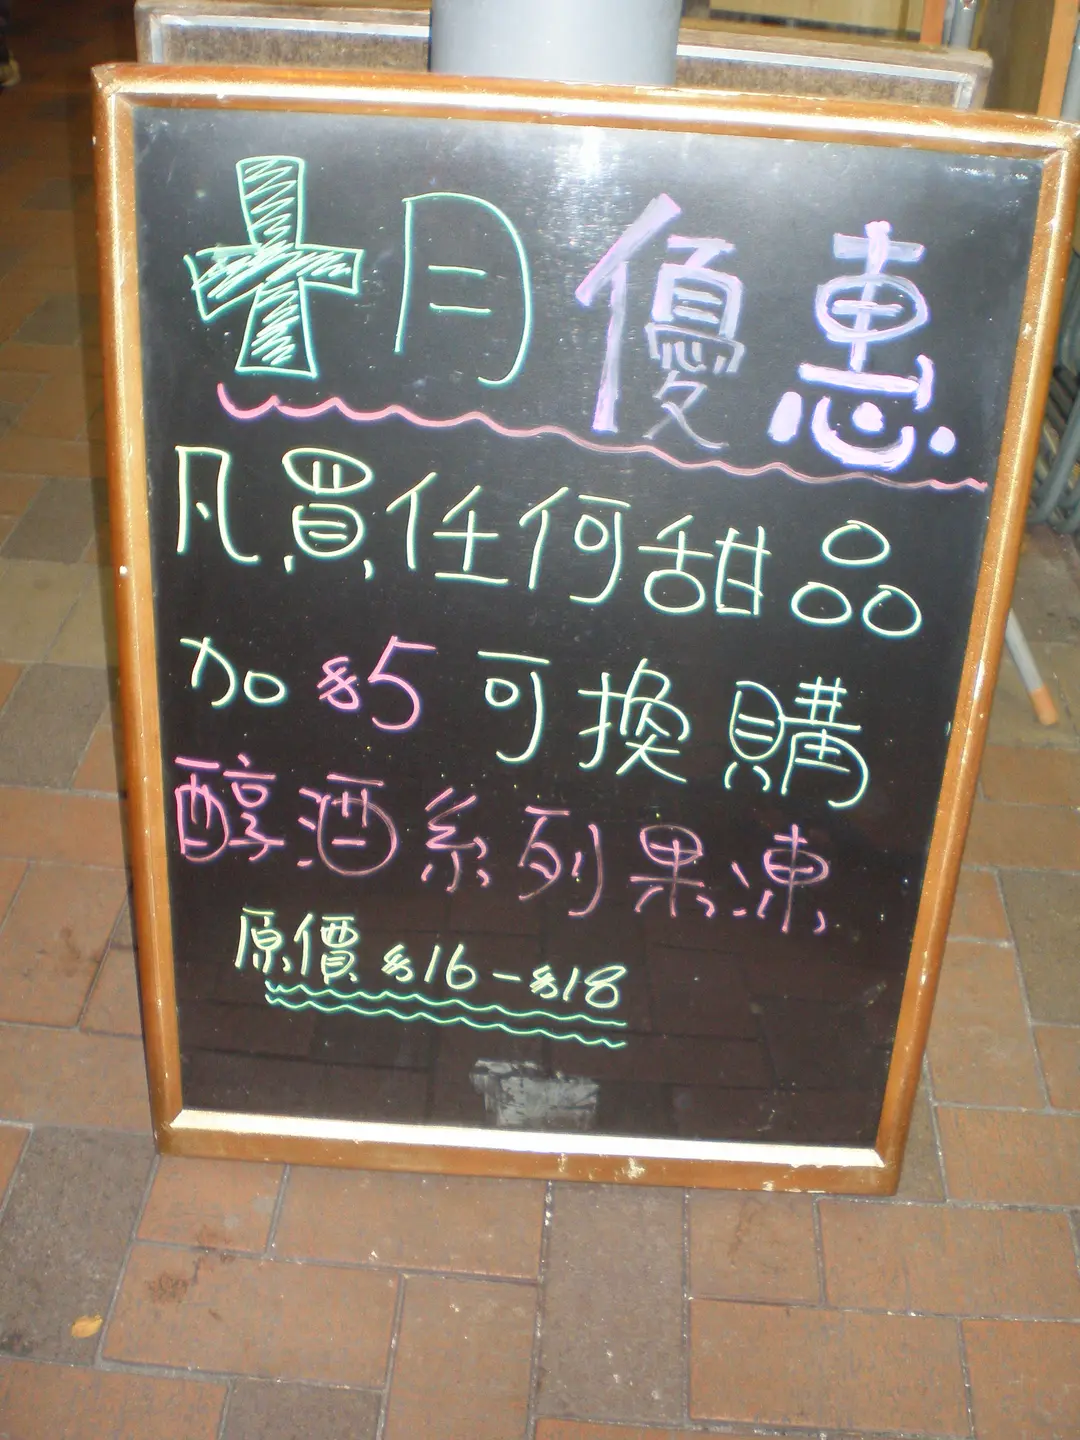 十月優惠
凡買任何甜品
加$5可換購
醇酒系列果凍
原價$16-$18